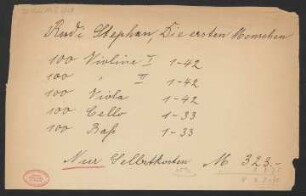 Rudi Stephan, Die ersten Menschen
100 Violine I 1-42
100 " II 1-42
100 Viola 1-42
100 Cello 1-33
100 Baß 1-33
Neue Selbstkosten M 323.-